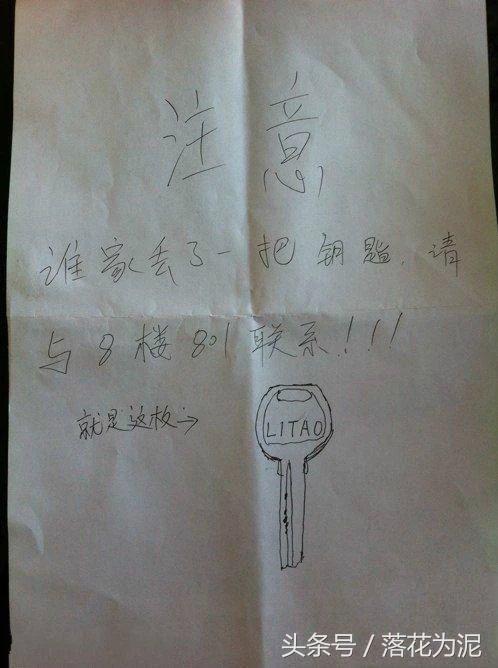 注意
谁家丢了一把钥匙,请
与8楼801联系!!!
就是这枚→
LITAO
头条号 / 落花为泥